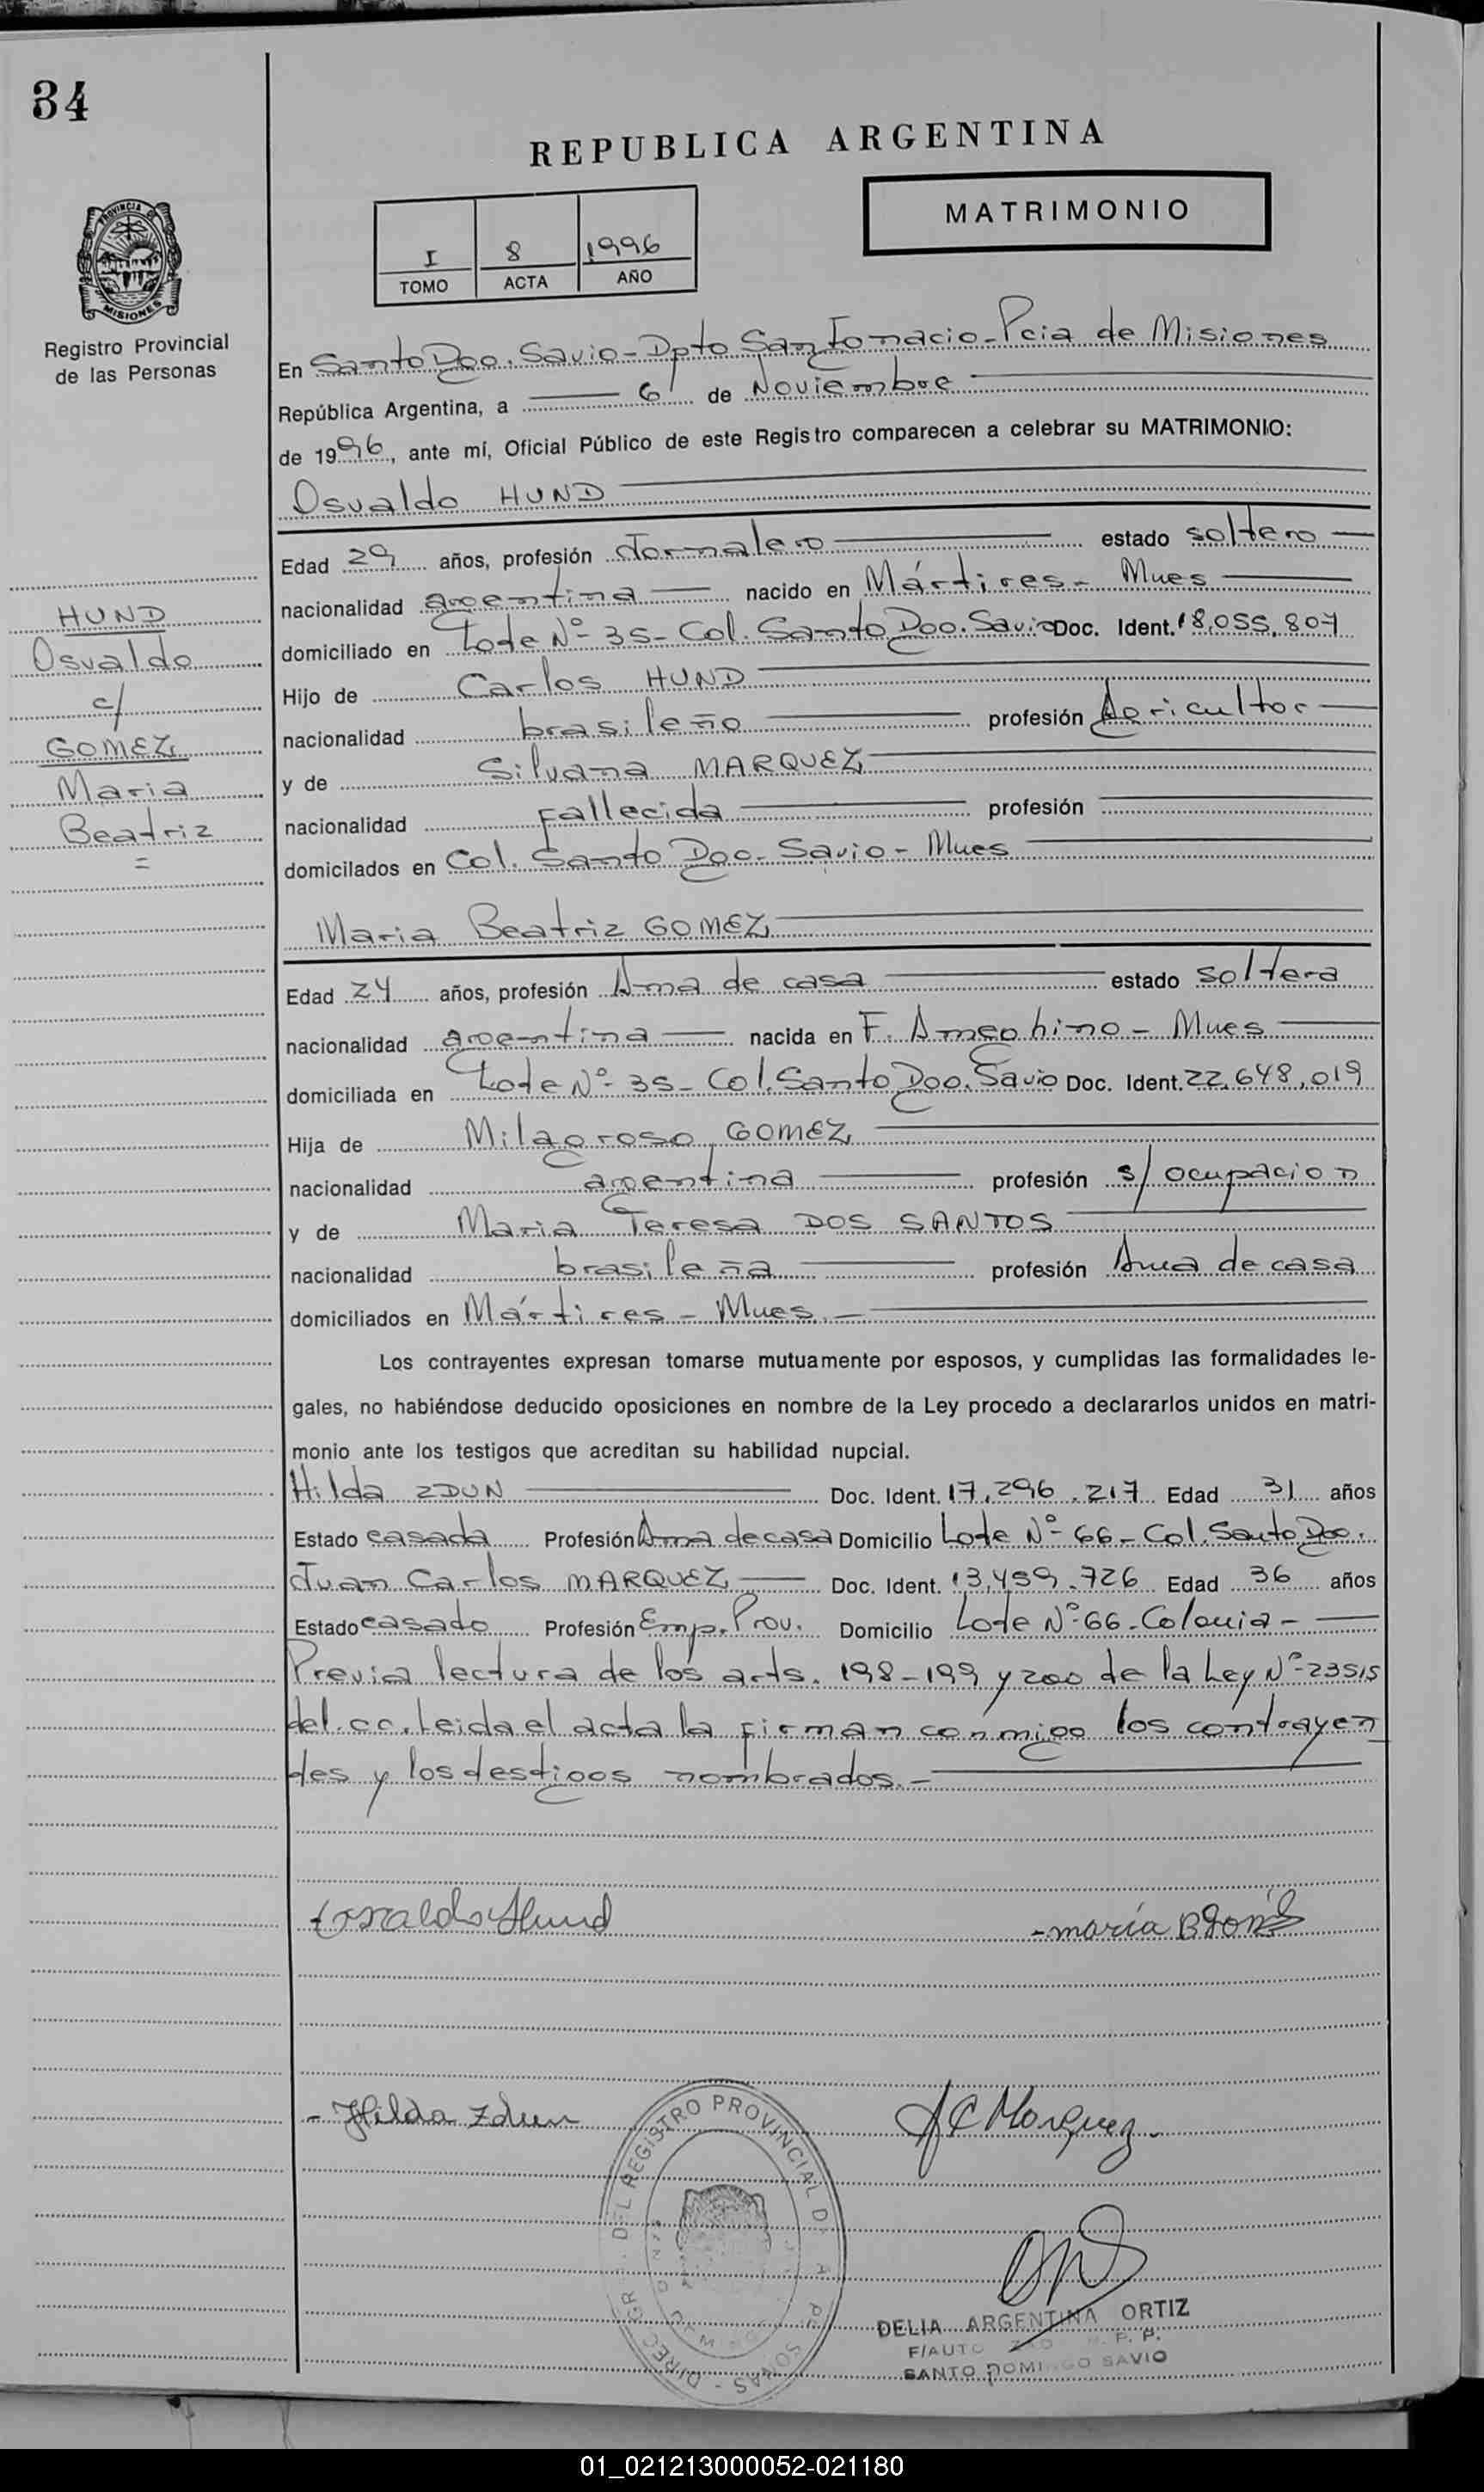 34
REPUBLICA ARGENTINA
MATRIMONIO
I 8 1996
TOMO ACTA AÑO
PROVINCIA DE
MISIONES
Registro Provincial
de las Personas
En Santo Dgo. Savio - Dpto San Ignacio - Pcia de Misiones
República Argentina, a 6 de Noviembre
de 1996, ante mí, Oficial Público de este Registro comparecen a celebrar su MATRIMONIO:
Osvaldo HUND
Edad 29 años, profesión Jornalero estado soltero
nacionalidad argentina nacido en Mártires - Mnes
domiciliado en Lote Nº 35 - Col. Santo Dgo. Savio Doc. Ident. 18.055.807
Hijo de Carlos HUND
nacionalidad brasileño profesión Agricultor
y de Silvana MARQUEZ
nacionalidad fallecida profesión
domicilados en Col. Santo Dgo. Savio - Mnes
HUND
Osvaldo
c/
GOMEZ
Maria
Beatriz
=
Maria Beatriz GOMEZ
Edad 24 años, profesión Ama de casa estado soltera
nacionalidad argentina nacida en F. Ameghino - Mnes
domiciliada en Lote Nº 35 - Col. Santo Dgo. Savio Doc. Ident. 22.648.019
Hija de Milagroso GOMEZ
nacionalidad argentina profesión s/ ocupacion
y de Maria Teresa DOS SANTOS
nacionalidad brasileña profesión Ama de casa
domiciliados en Mártires - Mnes. -
Los contrayentes expresan tomarse mutuamente por esposos, y cumplidas las formalidades le-
gales, no habiéndose deducido oposiciones en nombre de la Ley procedo a declararlos unidos en matri-
monio ante los testigos que acreditan su habilidad nupcial.
Hilda ZDUN Doc. Ident. 17.296.217 Edad 31 años
Estado casada Profesión Ama de casa Domicilio Lote Nº 66 - Col. Santo Dgo.
Juan Carlos MARQUEZ Doc. Ident. 13.459.726 Edad 36 años
Estado casado Profesión Emp. Prov. Domicilio Lote Nº 66 - Colonia -
Previa lectura de los arts. 198-199 y 200 de la Ley Nº 23515
del cc. Leida el acta la firman conmigo los contrayen
tes y los testigos nombrados. -
Osvaldo Hund
- maría B Gomez
- Hilda Zdun
J C Marquez.
DEL REGISTRO PROVINCIAL
DELIA ARGENTINA ORTIZ
SANTO DOMINGO SAVIO
01_021213000052-021180